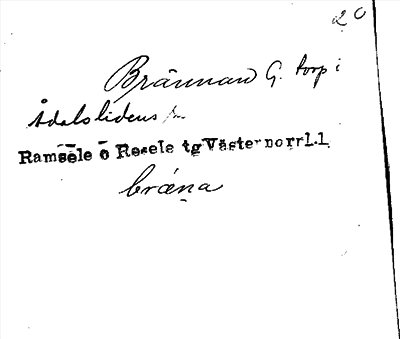 20
Brännan G. torp i
Ådalslidens sn
Ramsele o Resele tg Västernorrl.l.
bräṇa